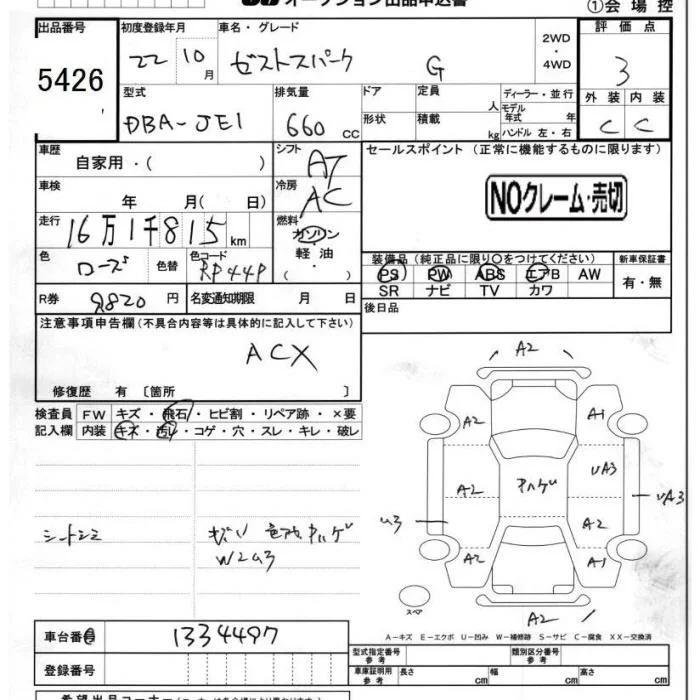 オークション出品申込書
①会場控
出品番号
5426
初度登録年月
22 10月
車名・グレード
ゼストスパーク G
2WD
・
4WD
評価点
3
型式
DBA-JE1
排気量
660cc
ドア
形状
定員 人
積載 kg
ディーラー・並行
モデル年式 年
ハンドル 左・右
外装 内装
C C
車歴
自家用・( )
シフト
AT
セールスポイント (正常に機能するものに限ります)
NOクレーム・売切
車検
年 月( 日)
冷房
AC
走行
16万1千815km
燃料
ガソリン
軽油
( ・ )
色
ローズ
色替
色コード
RP44P
装備品 (純正品に限り○をつけてください)
PS PW ABS エアB AW
SR ナビ TV カワ
新車保証書
有・無
R券
9820円
名変通知期限 月 日
後日品
注意事項申告欄 (不具合内容等は具体的に記入して下さい)
ACX
修復歴 有 〔箇所 〕
検査員
記入欄
FW キズ・飛石・ヒビ割・リペア跡・×要
内装 キズ・汚レ・コゲ・穴・スレ・キレ・破レ
A2
A2 A1
UA3
A2 ハゲ UA3
U3 A2
A2 A1
スペア
A2
シートシミ
W2U3
A-キズ E-エクボ U-凹み W-補修跡 S-サビ C-腐食 XX-交換済
車台番号
1334497
登録番号
型式指定番号
参考
類別区分番号
参考
車庫証明用
参考
長さ cm 幅 cm 高さ cm
希望出品コーナー